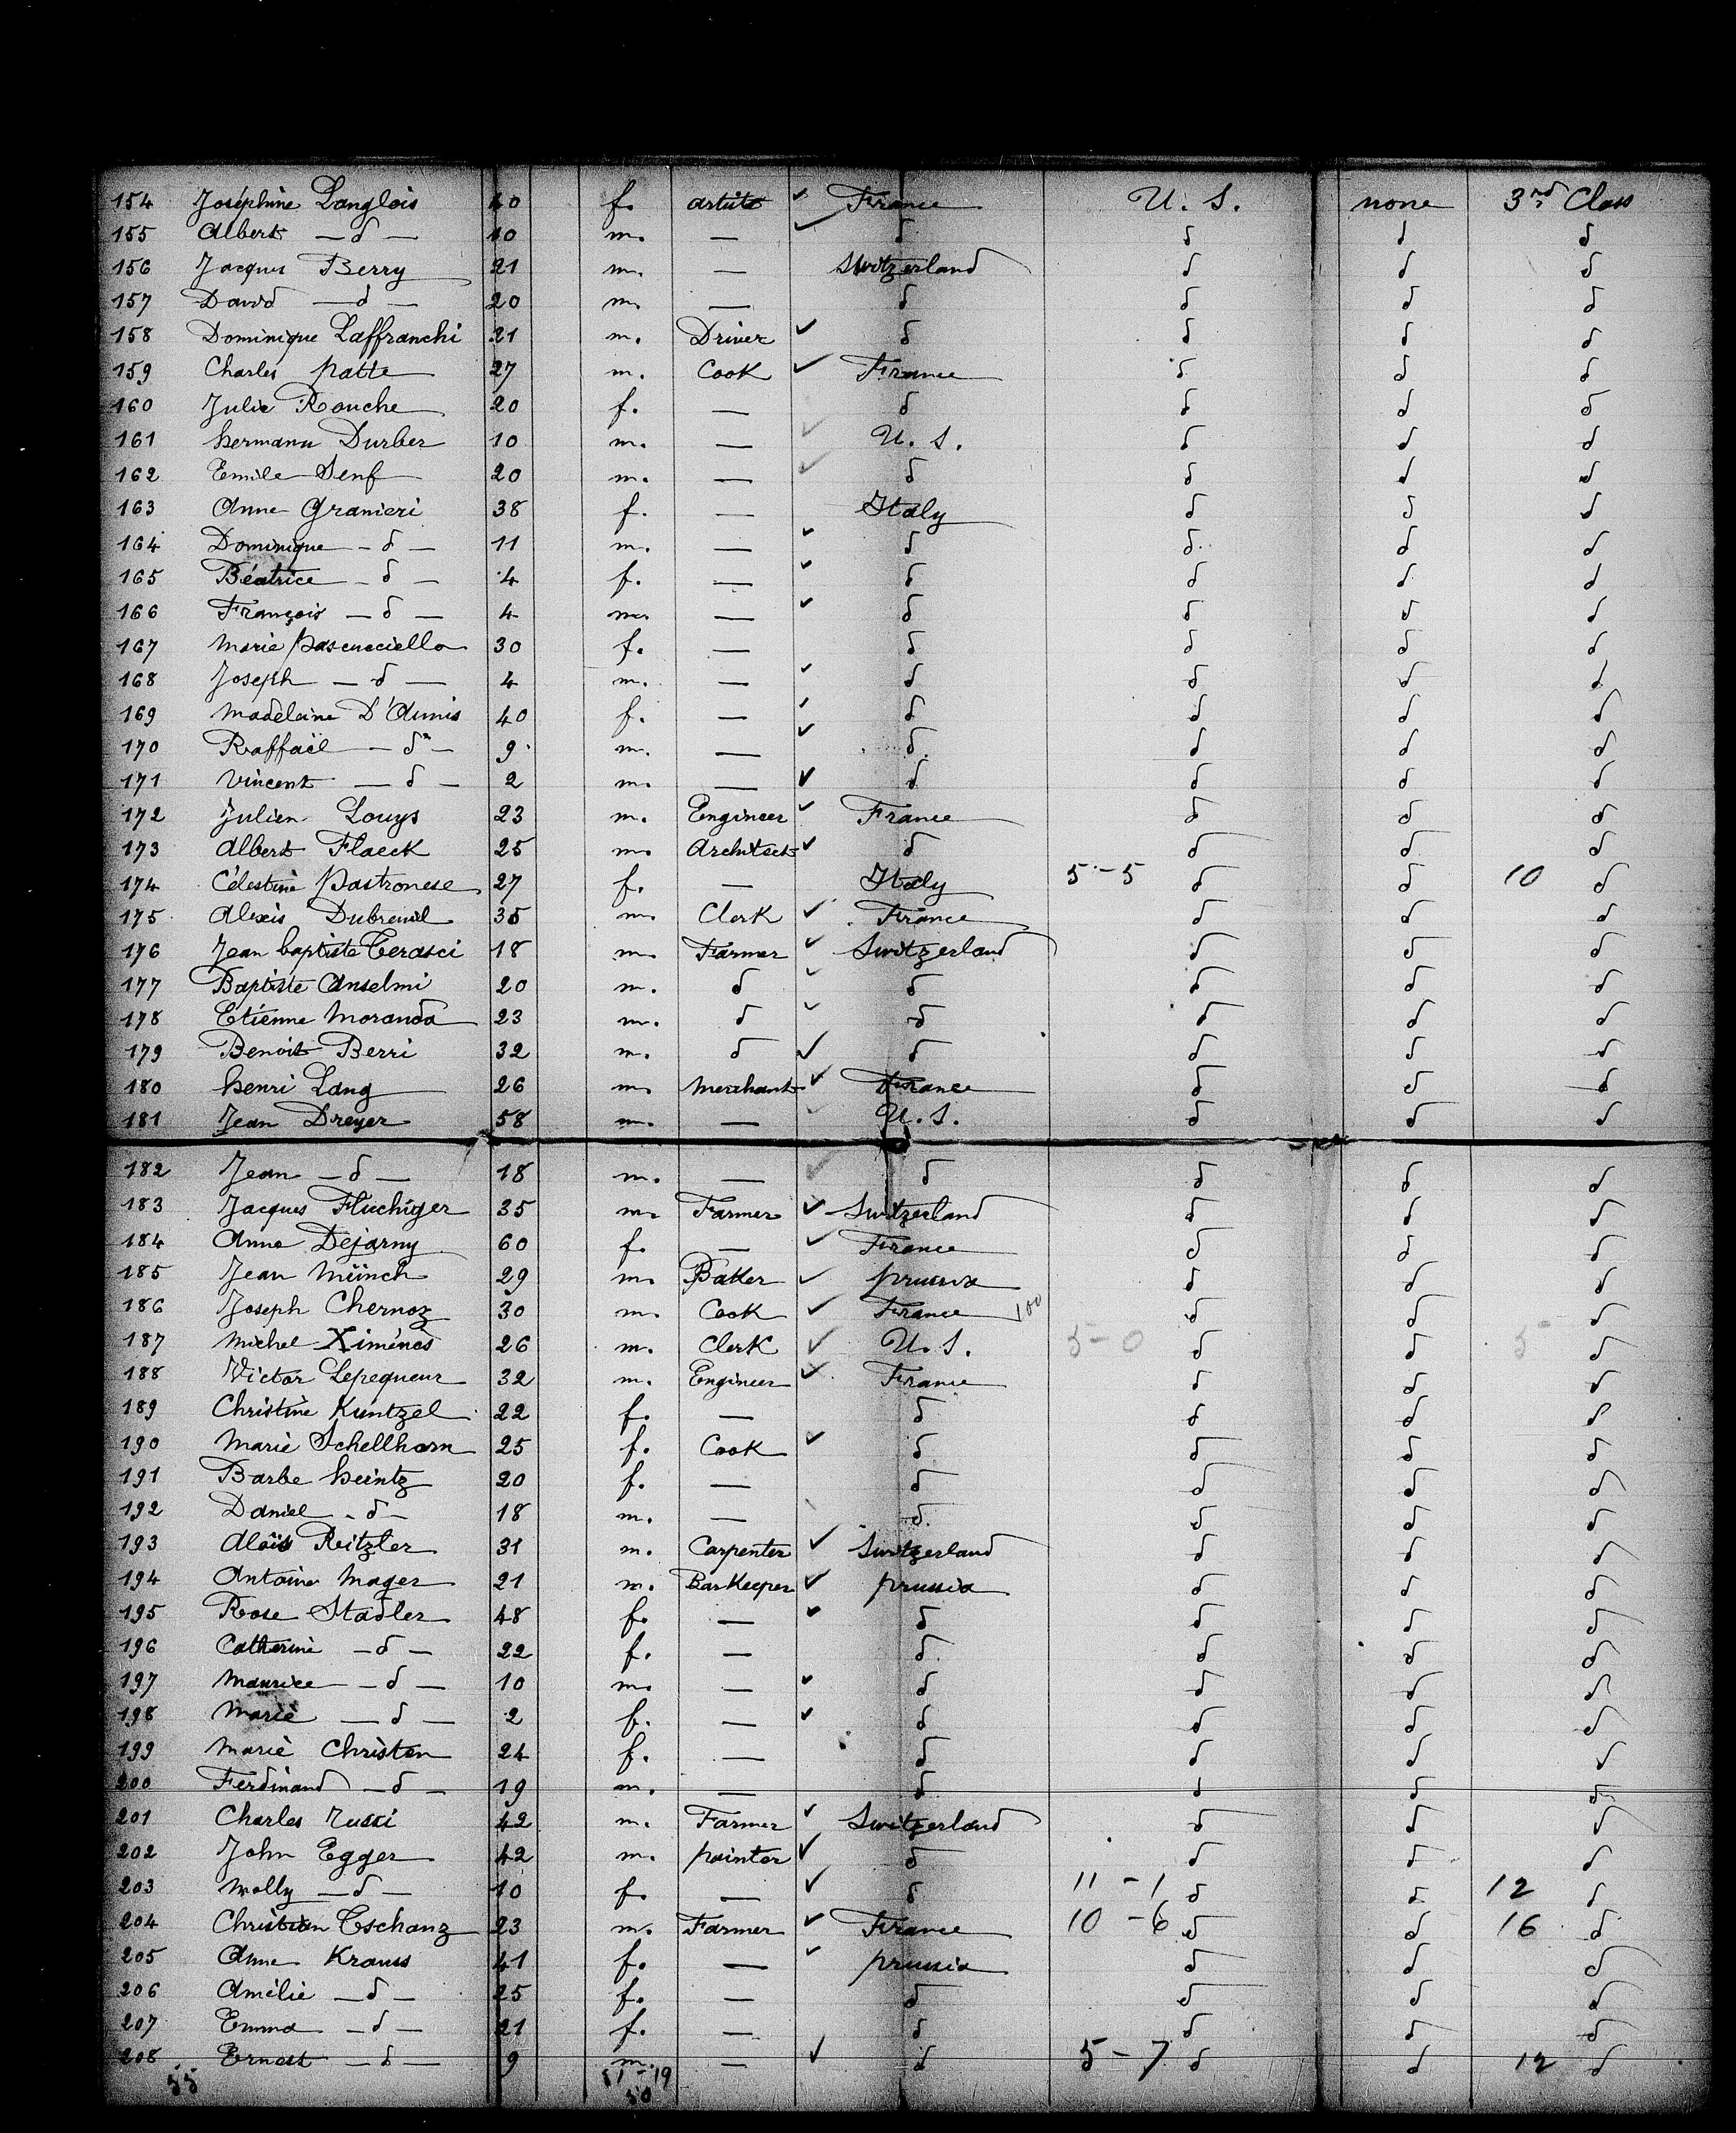 154 Joséphine Langlois 40 f. artiste ✓ France U. S. none 3rd Class
155 Albert — d — 10 m. — ✓ d d d d
156 Jacques Berry 21 m. — Switzerland d d d
157 David — d — 20 m. — d d d d
158 Dominique Laffranchi 21 m. Driver ✓ d d d d
159 Charles Patte 27 m. Cook ✓ France d d d
160 Julie Rouche 20 f. — d d d d
161 Hermann Durber 10 m. — ✓ U. S. d d d
162 Emile Senf 20 m. — ✓ d d d d
163 Anne Granieri 38 f. — Italy d d d
164 Dominique - d — 11 m. — ✓ d d d d
165 Béatrice - d — 4 f. — ✓ d d d d
166 François — d — 4 m. — ✓ d d d d
167 Marie Pascucciello 30 f. — d d d d
168 Joseph — d — 4 m. — ✓ d d d d
169 Madeleine D'Aunis 40 f. — ✓ d d d d
170 Raffaël — d — 9 m. — ✓ d d d d
171 Vincent — d — 2 m. — ✓ d d d d
172 Julien Louys 23 m. Engineer ✓ France d d d
173 Albert Flaeck 25 m. Architect ✓ d d d d
174 Célestine Pastronese 27 f. — Italy 5 - 5 d d 10 d
175 Alexis Dubreuil 35 m. Clerk ✓ France d d d
176 Jean baptiste Cerasci 18 m. Farmer ✓ Switzerland d d d
177 Baptiste Anselmi 20 m. d ✓ d d d d
178 Etienne Moranda 23 m. d ✓ d d d d
179 Benoit Berri 32 m. d ✓ d d d d
180 Henri Lang 26 m. Merchant ✓ France d d d
181 Jean Dreyer 58 m. — ✓ U. S. d d d
182 Jean — d — 18 m. — ✓ d d d d
183 Jacques Fluchiger 35 m. Farmer ✓ Switzerland d d d
184 Anna Dejarny 60 f. — ✓ France d d d
185 Jean Münch 29 m. Baker ✓ Prussia d d d
186 Joseph Chernoz 30 m. Cook ✓ France 100 d d d
187 Michel Ximénès 26 m. Clerk ✓ U. S. 5 - 0 d d 5 d
188 Victor Lepequeur 32 m. Engineer ✓ France d d d
189 Christine Kuntzel 22 f. — d d d d
190 Marie Schellhorn 25 f. Cook ✓ d d d d
191 Barbe Heintz 20 f. — d d d d
192 Daniel - d - 18 m. — d d d d
193 Aloïs Reitzler 31 m. Carpenter ✓ Switzerland d d d
194 Antoine Mager 21 m. BarKeeper ✓ Prussia d d d
195 Rose Stadler 48 f. — ✓ d d d d
196 Catherine — d — 22 f. — d d d d
197 Maurice — d — 10 m. — ✓ d d d d
198 Marie — d — 2 f. — ✓ d d d d
199 Marie Christen 24 f. — d d d d
200 Ferdinand — d — 19 m. — d d d d
201 Charles Russi 42 m. Farmer ✓ Switzerland d d d
202 John Egger 42 m. painter ✓ d d d d
203 Molly — d — 10 f. — ✓ d 11 - 1 d d 12 d
204 Christian Tschanz 23 m. Farmer ✓ France 10 - 6 d d 16 d
205 Anne Krauss 41 f. — ✓ Prussia d d d
206 Amélie — d — 25 f. — d d d d
207 Emma — d — 21 f. — d d d d
208 Ernest — d — 9 m. — ✓ d 5 - 7 d d 12 d
55 - 19
50